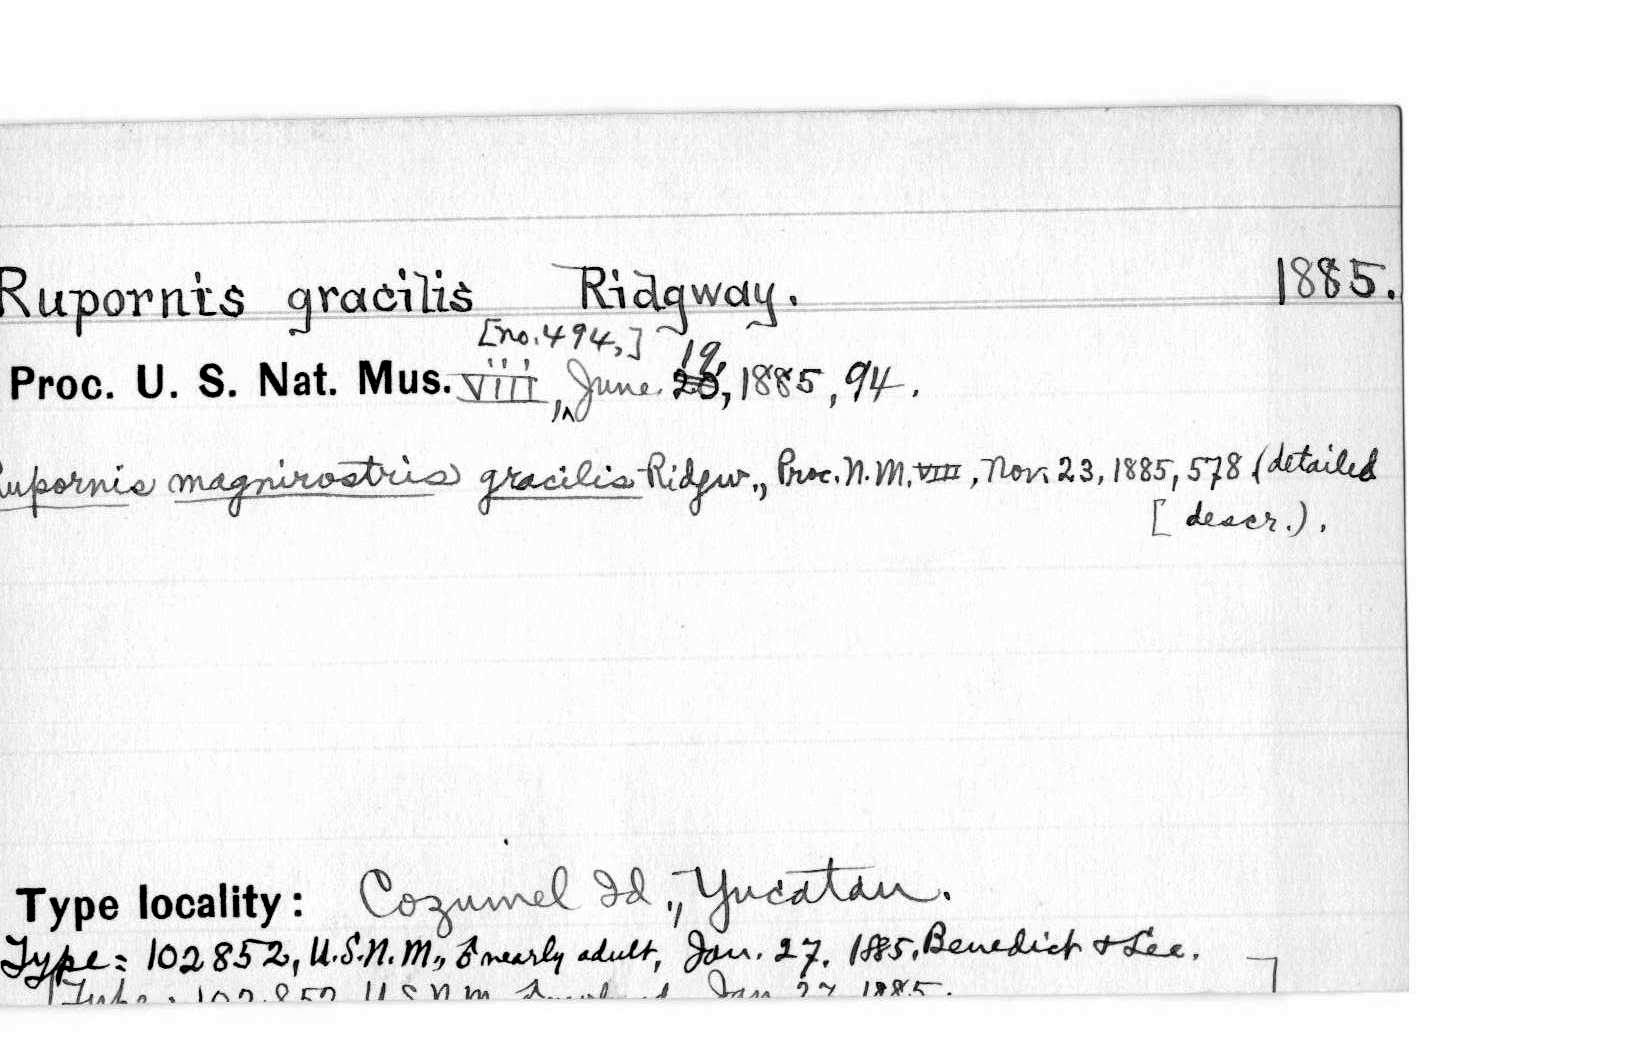 Rupornis gracilis Ridgway. 1885.
[no. 494,]
Proc. U. S. Nat. Mus. viii, June 20, 19, 1885, 94.
upornis magnirostris gracilis Ridgw., Proc. N. M. VIII, Nov. 23, 1885, 578 (detailed
[ descr.).
Type locality: Cozumel Id., Yucatan.
Type = 102852, U.S.N.M., nearly adult, Jan. 27, 1885, Benedict & Lee.
Type: 102852 U S N M Jan 27 1885.